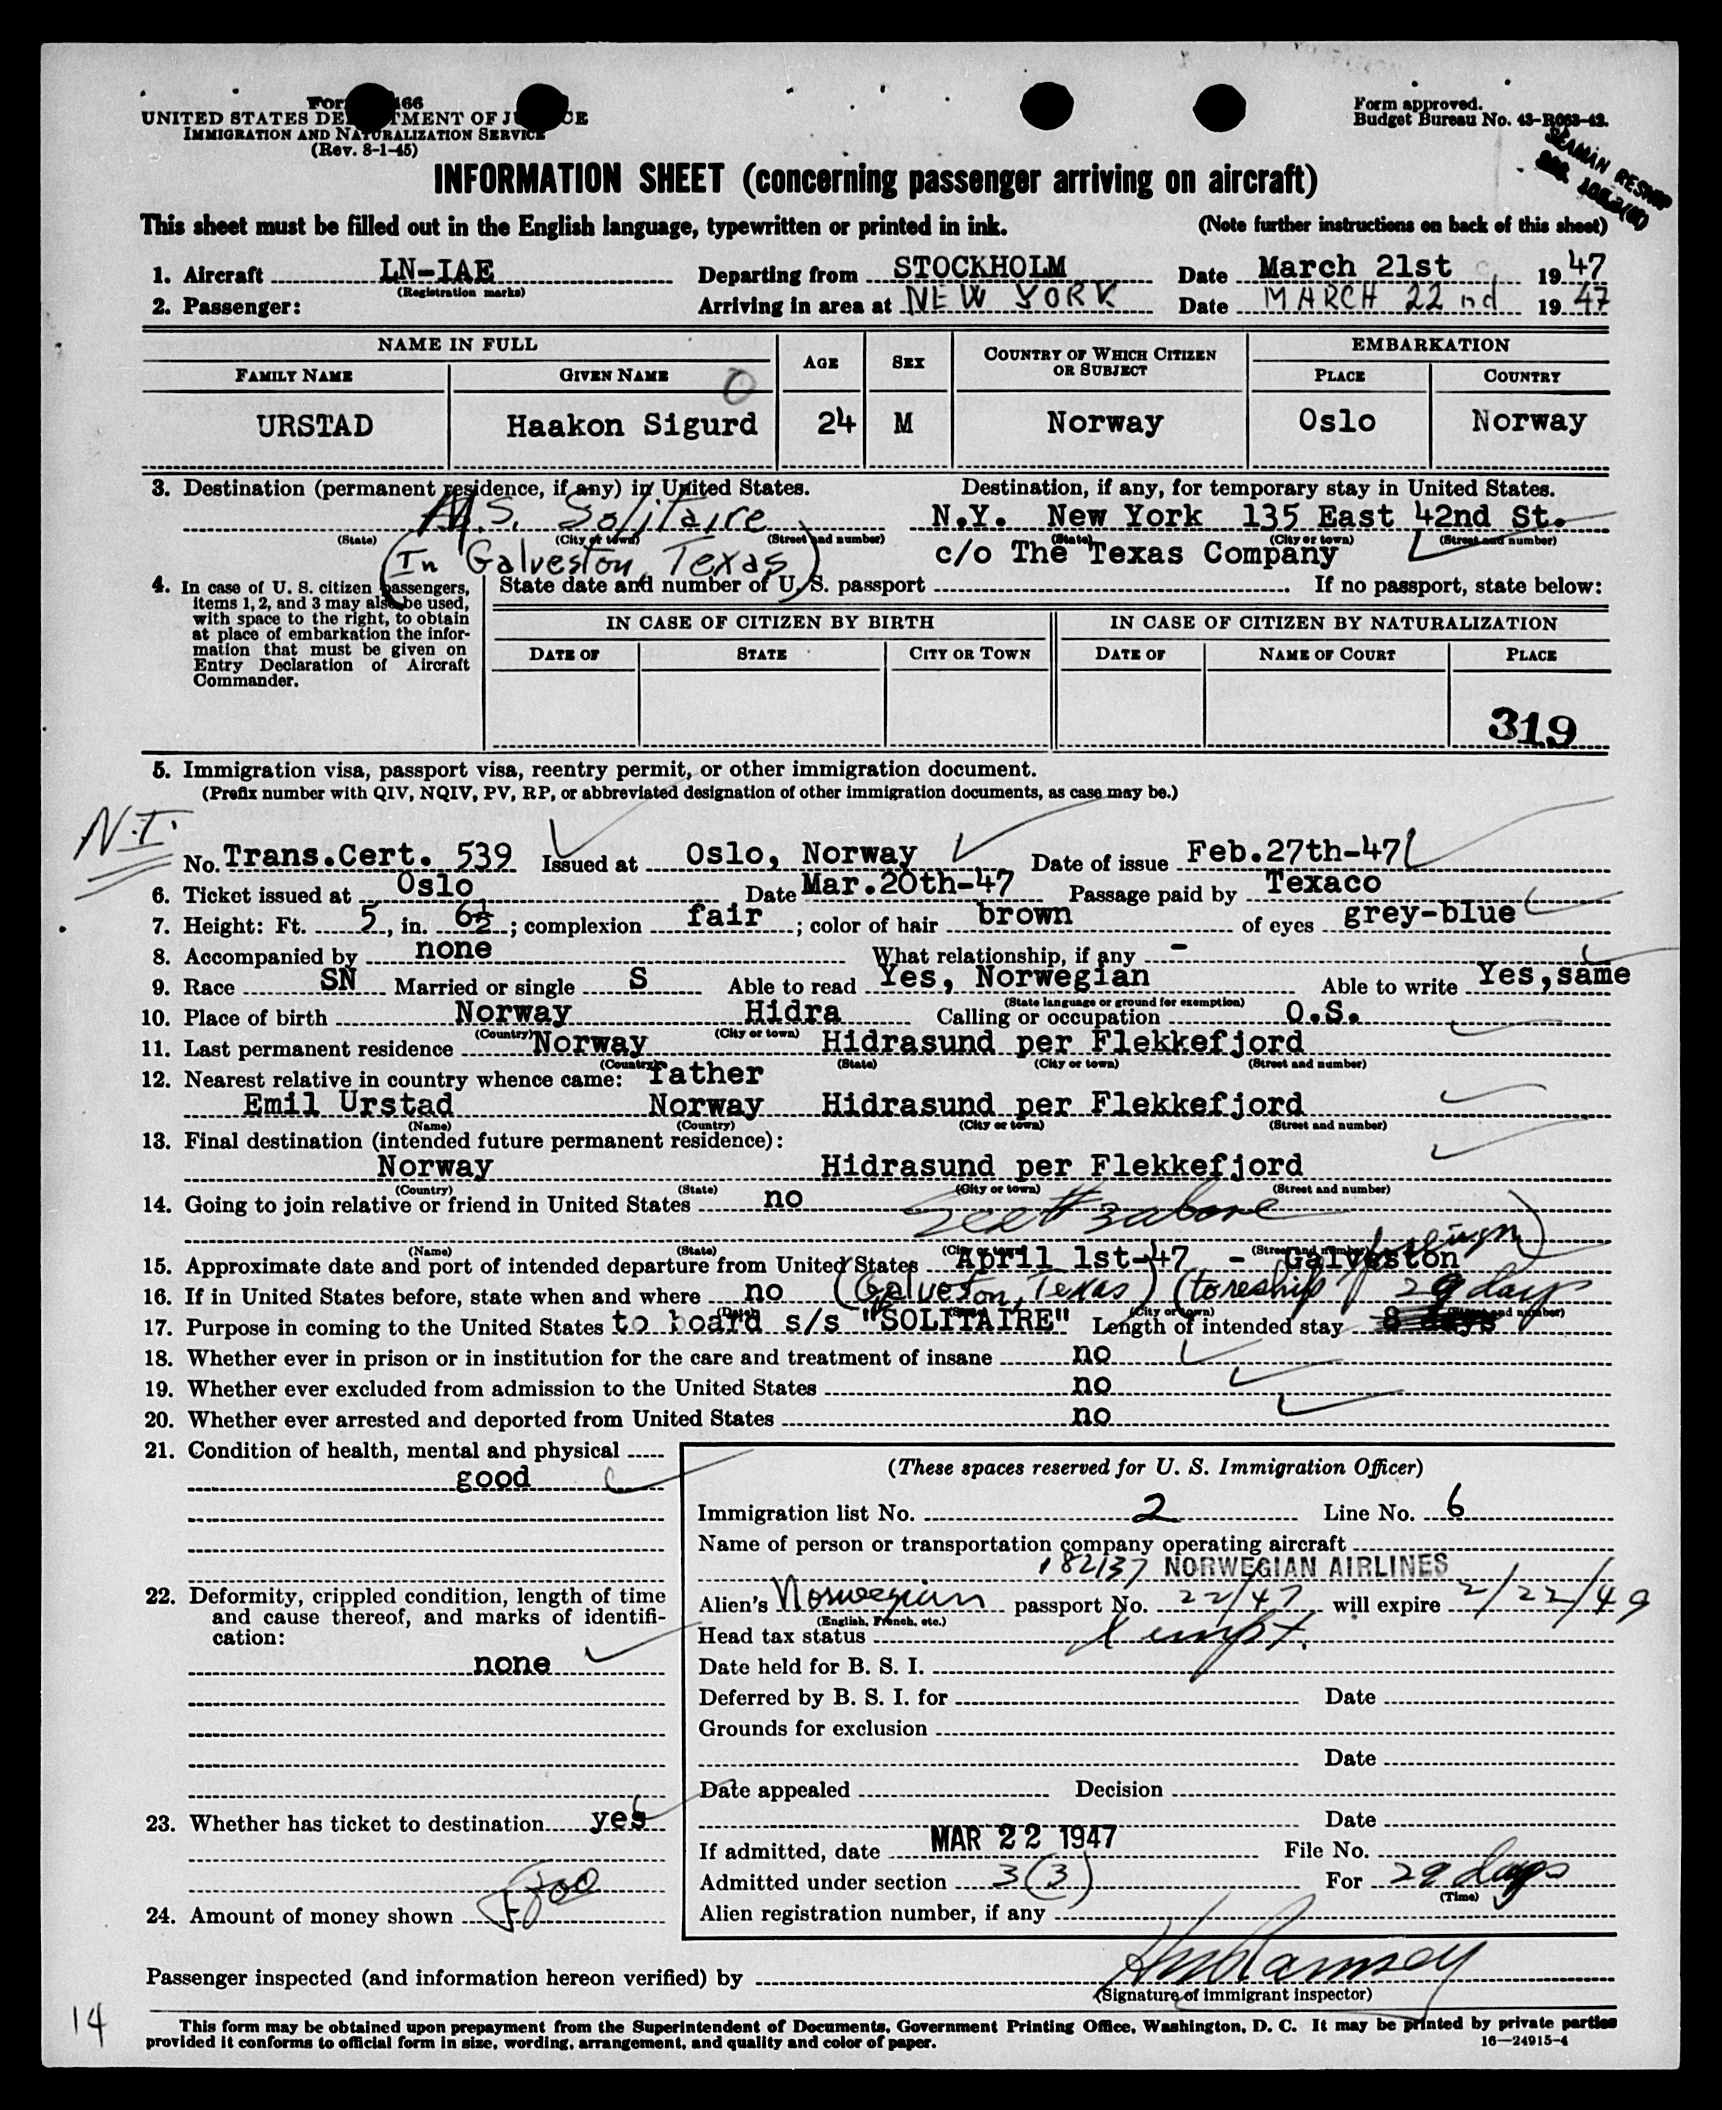 Form I-466
UNITED STATES DEPARTMENT OF JUSTICE
IMMIGRATION AND NATURALIZATION SERVICE
(Rev. 8-1-45)
Form approved.
Budget Bureau No. 43-R063-42.
SEAMAN RESHIP
INFORMATION SHEET (concerning passenger arriving on aircraft)
This sheet must be filled out in the English language, typewritten or printed in ink. (Note further instructions on back of this sheet)
1. Aircraft LN-IAE Departing from STOCKHOLM Date March 21st 1947
(Registration marks)
2. Passenger: Arriving in area at NEW YORK Date MARCH 22nd 1947
NAME IN FULL AGE SEX COUNTRY OF WHICH CITIZEN OR SUBJECT EMBARKATION
FAMILY NAME GIVEN NAME PLACE COUNTRY
URSTAD Haakon Sigurd 24 M Norway Oslo Norway
3. Destination (permanent residence, if any) in United States. Destination, if any, for temporary stay in United States.
M.S. Solitaire N.Y. New York 135 East 42nd St.
(State) (City or town) (Street and number) (State) (City or town) (Street and number)
(In Galveston, Texas) c/o The Texas Company
4. In case of U. S. citizen passengers, State date and number of U. S. passport If no passport, state below:
items 1, 2, and 3 may also be used,
with space to the right, to obtain
at place of embarkation the infor-
mation that must be given on
Entry Declaration of Aircraft
Commander.
IN CASE OF CITIZEN BY BIRTH IN CASE OF CITIZEN BY NATURALIZATION
DATE OF STATE CITY OR TOWN DATE OF NAME OF COURT PLACE
319
5. Immigration visa, passport visa, reentry permit, or other immigration document.
(Prefix number with QIV, NQIV, PV, RP, or abbreviated designation of other immigration documents, as case may be.)
N.I.
No. Trans.Cert. 539 Issued at Oslo, Norway Date of issue Feb.27th-47
6. Ticket issued at Oslo Date Mar.20th-47 Passage paid by Texaco
7. Height: Ft. 5, in. 6½; complexion fair; color of hair brown of eyes grey-blue
8. Accompanied by none What relationship, if any -
9. Race SN Married or single S Able to read Yes, Norwegian Able to write Yes,same
(State language or ground for exemption)
10. Place of birth Norway Hidra Calling or occupation O.S.
(Country) (City or town)
11. Last permanent residence Norway Hidrasund per Flekkefjord
(Country) (State) (City or town) (Street and number)
12. Nearest relative in country whence came: father
Emil Urstad Norway Hidrasund per Flekkefjord
(Name) (Country) (City or town) (Street and number)
13. Final destination (intended future permanent residence):
Norway Hidrasund per Flekkefjord
(Country) (State) (City or town) (Street and number)
14. Going to join relative or friend in United States no See # 3 above
(Name) (State) (City or town) (Street and number)
15. Approximate date and port of intended departure from United States April 1st-47 - Galveston
16. If in United States before, state when and where no (Galveston, Texas) (to reship foreign) 29 days
(Date) (State) (City or town) (Street and number)
17. Purpose in coming to the United States to board s/s "SOLITAIRE" Length of intended stay 8 days
18. Whether ever in prison or in institution for the care and treatment of insane no
19. Whether ever excluded from admission to the United States no
20. Whether ever arrested and deported from United States no
21. Condition of health, mental and physical
good
22. Deformity, crippled condition, length of time
and cause thereof, and marks of identifi-
cation:
none
23. Whether has ticket to destination yes
24. Amount of money shown
(These spaces reserved for U. S. Immigration Officer)
Immigration list No. 2 Line No. 6
Name of person or transportation company operating aircraft
182137 NORWEGIAN AIRLINES
Alien's Norwegian passport No. 22/47 will expire 2/22/49
(English, French, etc.)
Head tax status Exempt.
Date held for B. S. I.
Deferred by B. S. I. for Date
Grounds for exclusion
Date
Date appealed Decision
Date
If admitted, date MAR 22 1947 File No.
Admitted under section 3(3) For 29 days
(Time)
Alien registration number, if any
Passenger inspected (and information hereon verified) by Ramsey
(Signature of immigrant inspector)
14
This form may be obtained upon prepayment from the Superintendent of Documents, Government Printing Office, Washington, D. C. It may be printed by private parties
provided it conforms to official form in size, wording, arrangement, and quality and color of paper. 16—24915-4